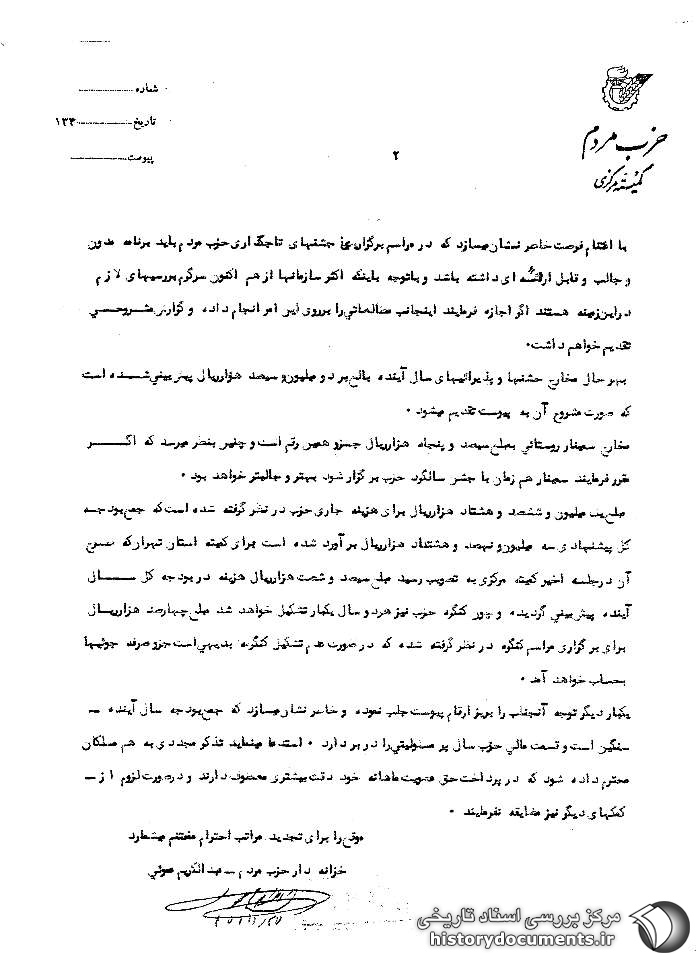 شماره
تاریخ ۱۳۴
پیوست
۲
حزب مردم
کمیته مرکزی
با اغتنام فرصت خاطر نشان میسازد که در مراسم برگزاری جشنهای تاجگذاری حزب مردم باید برنامه مدون
و جالب و قابل ارائه ای داشته باشد و باتوجه باینکه اکثر سازمانها از هم اکنون سرگرم بررسیهای لازم
دراین زمینه هستند اگر اجازه فرمایند اینجانب مطالعاتی را برروی این امر انجام داده و گزارش مشروحی
تقدیم خواهم داشت.
بهر حال مخارج جشنها و پذیرائیهای سال آینده بالغ بر دو میلیون و سیصد هزار ریال پیش بینی شده است
که صورت مشروح آن به پیوست تقدیم میشود .
مخارج سمینار روستائی بمبلغ سیصد و پنجاه هزار ریال جزو همین رقم است و چنین بنظر میرسد که اگر
مقرر فرمایند سمینار هم زمان با جشن سالگرد حزب برگزار شود بهتر و جالبتر خواهد بود .
مبلغ یک میلیون و ششصد و هشتاد هزار ریال برای هزینه جاری حزب در نظر گرفته شده است که جمع بودجه
کل پیشنهادی سه میلیون و نهصد و هشتاد هزار ریال برآورد شده است برای کمیته استان تهران که
آن در جلسه اخیر کمیته مرکزی به تصویب رسید مبلغ سیصد و شصت هزار ریال هزینه در بودجه کل سال
آینده پیش بینی گردیده و چون کنگره حزب نیز هر دو سال یکبار تشکیل خواهد شد مبلغ چهارصد هزار ریال
برای برگزاری مراسم کنگره در نظر گرفته شده که در صورت عدم تشکیل کنگره بدیهی است جزو صرفه جوئیها
بحساب خواهد آمد .
یکبار دیگر توجه آنجناب را بریز ارقام پیوست جلب نموده و خاطر نشان میسازد که جمع بودجه سال آینده ـ
سنگین است و قسمت مالی حزب سال پر مسئولیتی را در بر دارد . استدعا مینماید تذکر مجددی به هم مسلکان
محترم داده شود که در پرداخت حق عضویت ماهانه خود دقت بیشتری معطوف دارند و در صورت لزوم از ـ
کمکهای دیگر نیز مضایقه نفرمایند .
موقع را برای تجدید مراتب احترام مغتنم میشمارد
خزانه دار حزب مردم ـ عبدالکریم صوتی
مرکز بررسی اسناد تاریخی
historydocuments.ir